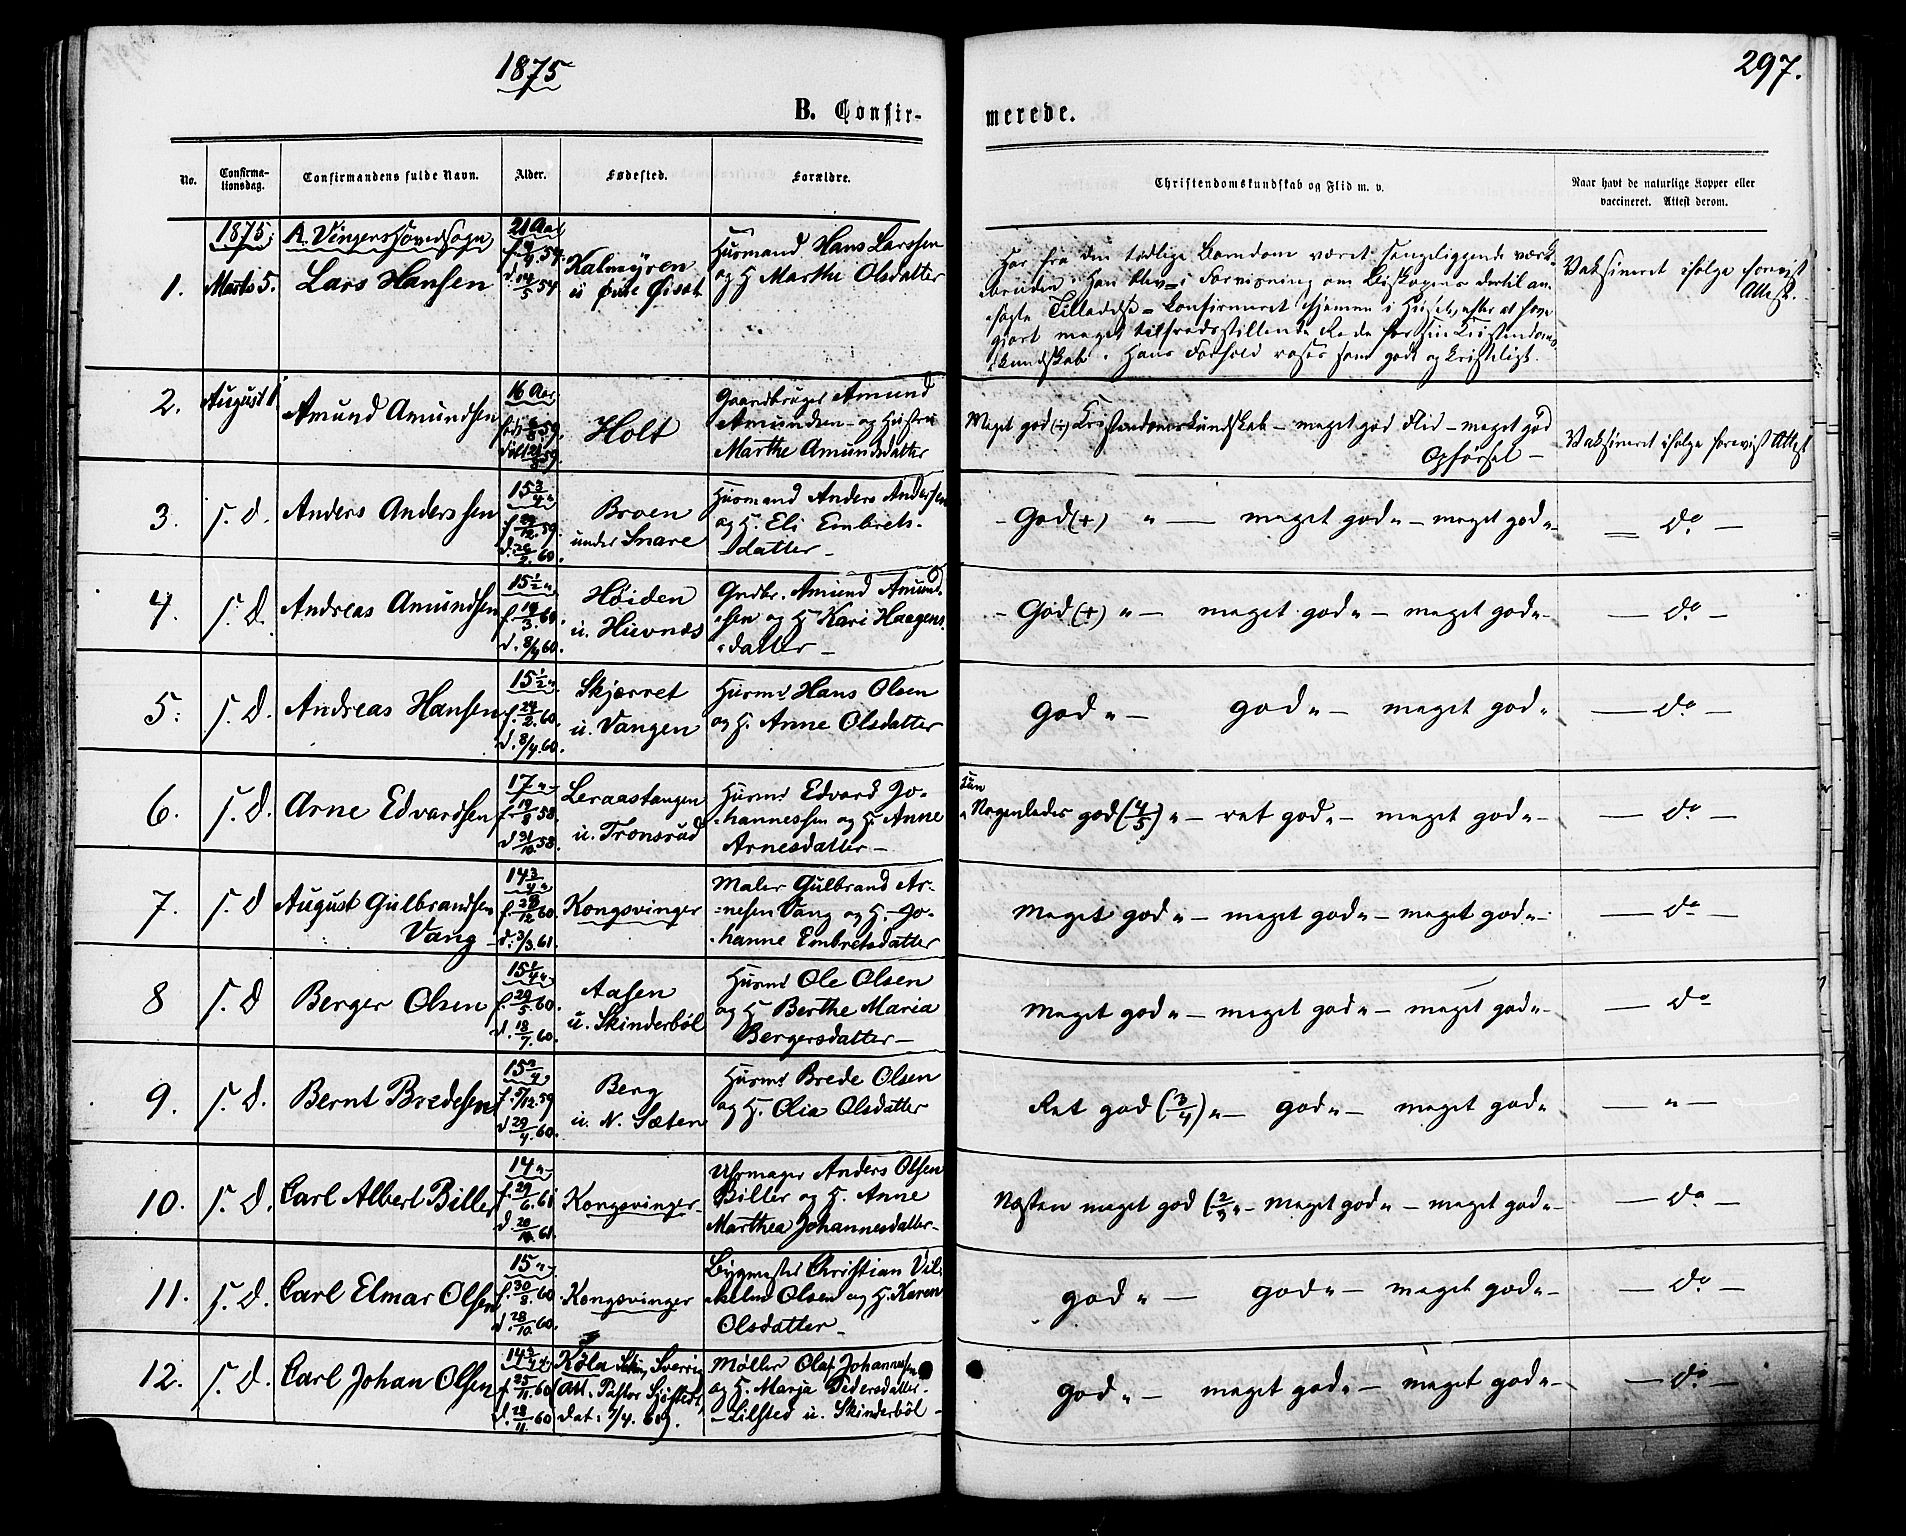 1875
297.
B. Confir-
merede.
No.
Confirma-
tionsdag.
Confirmandens fulde Navn.
Alder.
Fødested.
Forældre.
Christendomskundskab og Flid m. v.
Naar havt de naturlige Kopper eller
vaccineret. Attest derom.
1875.
A. Vingers Hovedsogn
21 Aar
1.
Marts 5.
Lars Hansen
d. 14/5 54
Kalmyren
u
Husmand Hans Larssen
og H. Marthe Olsdatter
Har fra den tidlige Barndom været sengeliggende
Han blev i Forvisning om Biskopens dertil an-
søgte Tilladelse konfirmeret hjemme i Huset, efter at have
gjort meget tilfredsstillende Rede for sin Kristendoms
kundskab. Hans Forhold roses som godt og kristeligt.
Vaksineret ifølge forevist
Attest.
2.
August 1
Amund Amundsen
16 Aar
Holt
Gaardbruger Amund
Amundsen og Hustru
Marthe Amundsdatter
Meget god (÷) Kristendomskundskab – meget god Flid – meget god
Opførsel –
Vaksineret ifølge forevist Attest
3.
s. d.
Anders Anderssen
15 3/4 "
f. 29/12. 59.
d. 26/2. 60.
Broen
under Snare
Husmand Anders Anderssen
og H. Eli Embrets-
datter –
– God (+) " – meget god " – meget god "
– do –
4.
s. d.
Andreas Amundsen
15 1/2 "
f. 19/3. 60.
d. 8/4 60.
Høiden
u. Hievnæs
Grdbr. Amund Amund-
sen og H. Kari Haagens-
datter –
– God (+) " – meget god " – meget god "
– do –
5.
s. d.
Andreas Hansen
15 1/2 "
f. 24/2. 60.
d. 8/4 60.
Skjerret
u. Vangen
Husmd Hans Olsen
og H. Anne Olsdatter
god " – god " – meget god "
– do –
6.
s. d.
Arne Edvardsen
17 "
f. 19/8 58.
d. 31/10. 58.
Leraastangen
u. Tronsrud
Husmd Edvard Jo-
hannessen og H. Anne
Arnesdatter –
kun
Nogenledes god (4/5) " – ret god " – meget god "
– do –
7.
s. d
August Gulbrandsen
Vang
14 3/4 "
f. 28/12 60
d. 3/3. 61.
Kongsvinger
Maler Gulbrand Ar-
nesen Vang og H. Jo-
hanne Embretsdatter
Meget god " – meget god " – meget god "
– do –
8
s. d
Berger Olsen
15 1/4 "
f. 29/5 60.
d. 18/7. 60.
Aasen
u. Skinderböl
Husmd Ole Olsen
og H. Berthe Maria
Bergersdatter –
Meget god " – meget god " – meget god "
– do
9.
s. d.
Bernt Bredesen
15 3/4 "
f. 5/12. 59
d. 29/4. 60.
Berg
u. N. Sæten
Husmd Brede Olsen
og H. Olia Olsdatter
Ret god (3/4) " – god " – meget god "
– " –
10.
s. d.
Carl Albert Biller
14 "
f. 29/6. 61
Kongsvinger
Uhrmager Anders Olsen
Biller og H. Anne
Marthea Johannesdatter
Næsten meget god (2/3 " – meget god " – meget god "
– do –
11.
s. d.
Carl Elmar Olsen
15 "
f. 30/8. 60
d. 28/10. 60.
Kongsvinger
Bygmester Christian Vil-
helm Olsen og H. Karen
Olsdatter –
god " – god " – meget god "
– do –
12.
s. d.
Carl Johan Olsen
14 3/4 "
f. 25/11. 60
d. 28/11. 60
Køla Sverrig
Att. Pastor
Møller Olaf Johannesen
og H. Marja Pedersdatter
– Lilsted u. Skinderböl –
god " – meget god " – meget god "
– do –